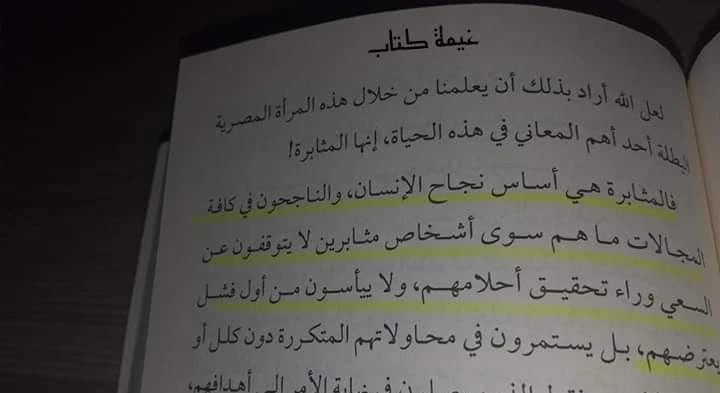 غيمة كتاب
لعل الله أراد بذلك أن يعلمنا من خلال هذه المرأة المصرية
البطلة أحد أهم المعاني في هذه الحياة، إنها المثابرة!
فالمثابرة هي أساس نجاح الإنسان، والناجحون في كافة
المجالات ما هم سوى أشخاص مثابرين لا يتوقفون عن
السعي وراء تحقيق أحلامهم، ولا ييأسون من أول فشل
يعترضهم، بل يستمرون في محاولاتهم المتكررة دون كلل أو
في نهاية الأمر إلى أهدافهم،